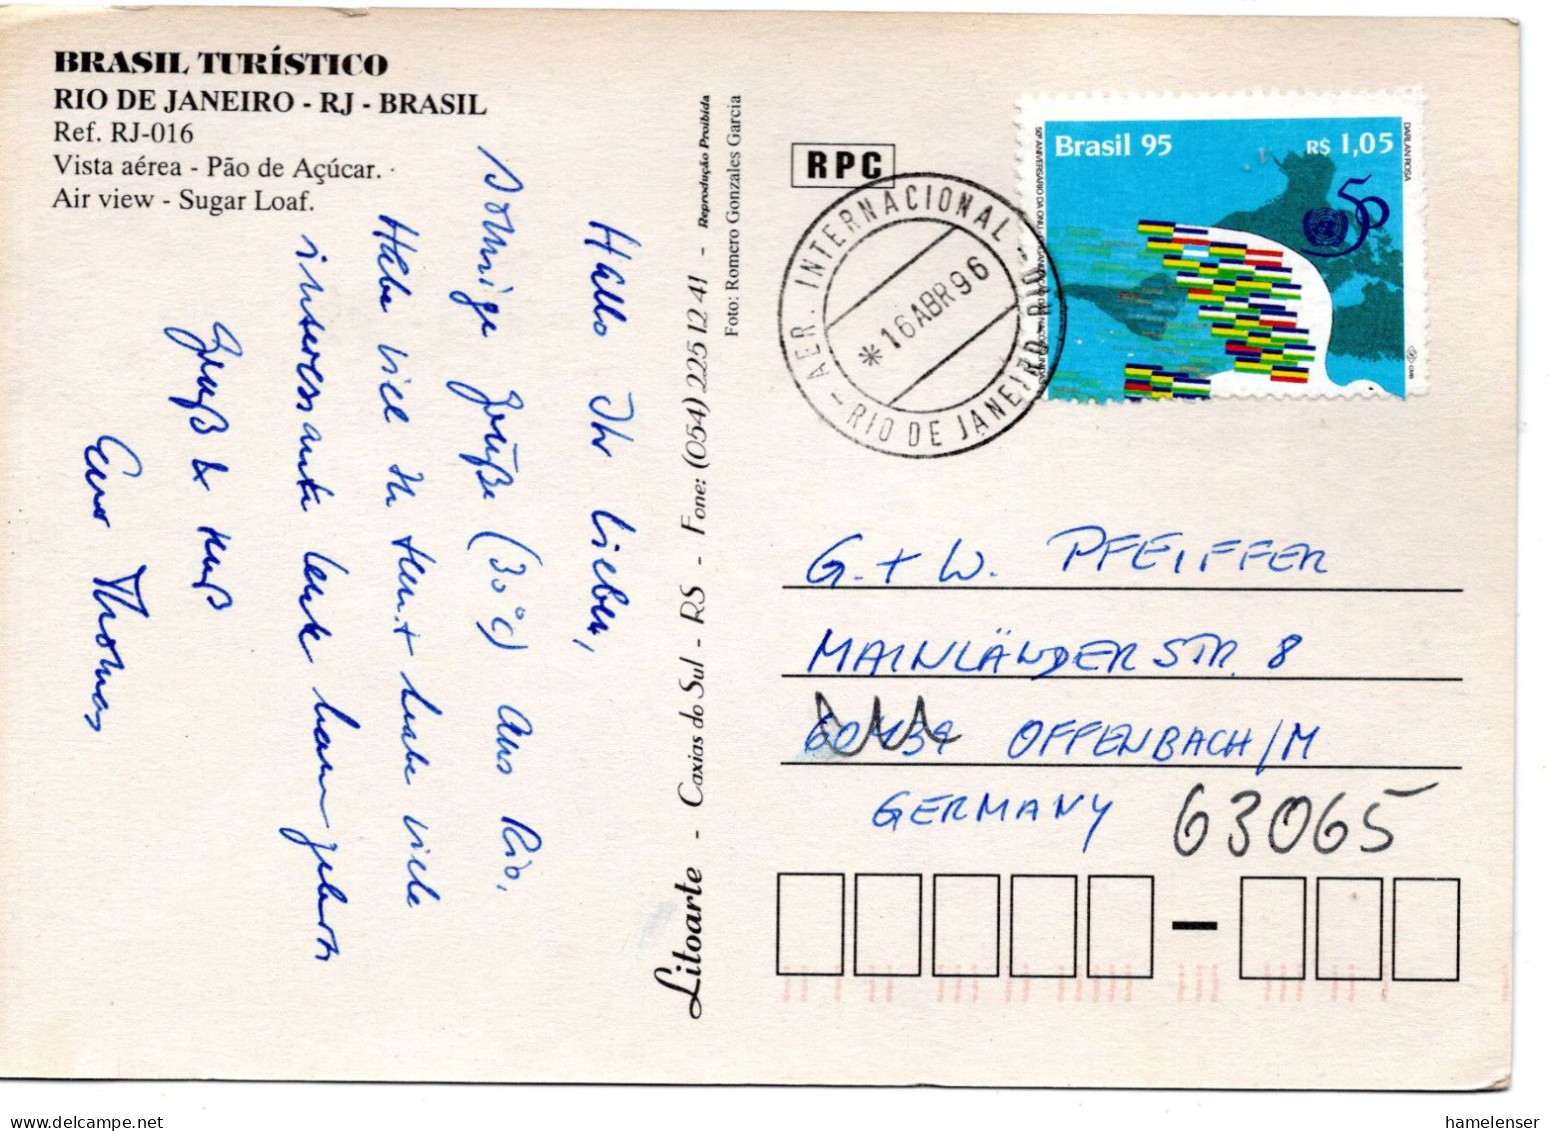 BRASIL TURÍSTICO
RIO DE JANEIRO - RJ - BRASIL
Ref. RJ-016
Vista aérea - Pão de Açúcar.
Air view - Sugar Loaf.
Hallo Ihr Lieben,
sonnige Grüße (30°C) aus Rio.
Habe viel zu tun + habe viele
interessante Leute kennengelernt
Gruß & Kuß
Euer Thomas
Litoarte - Caxias do Sul - RS - Fone: (054) 225 12 41 - Reprodução Proibida
Foto: Romero Gonzales Garcia
RPC
AER. INTERNACIONAL - RIO -
*16ABR96
- RIO DE JANEIRO
Brasil 95
R$ 1,05
50
DARLAN ROSA
G. + W. PFEIFFER
MAINLÄNDER STR. 8
OFFENBACH/M
GERMANY 63065
hamelenser